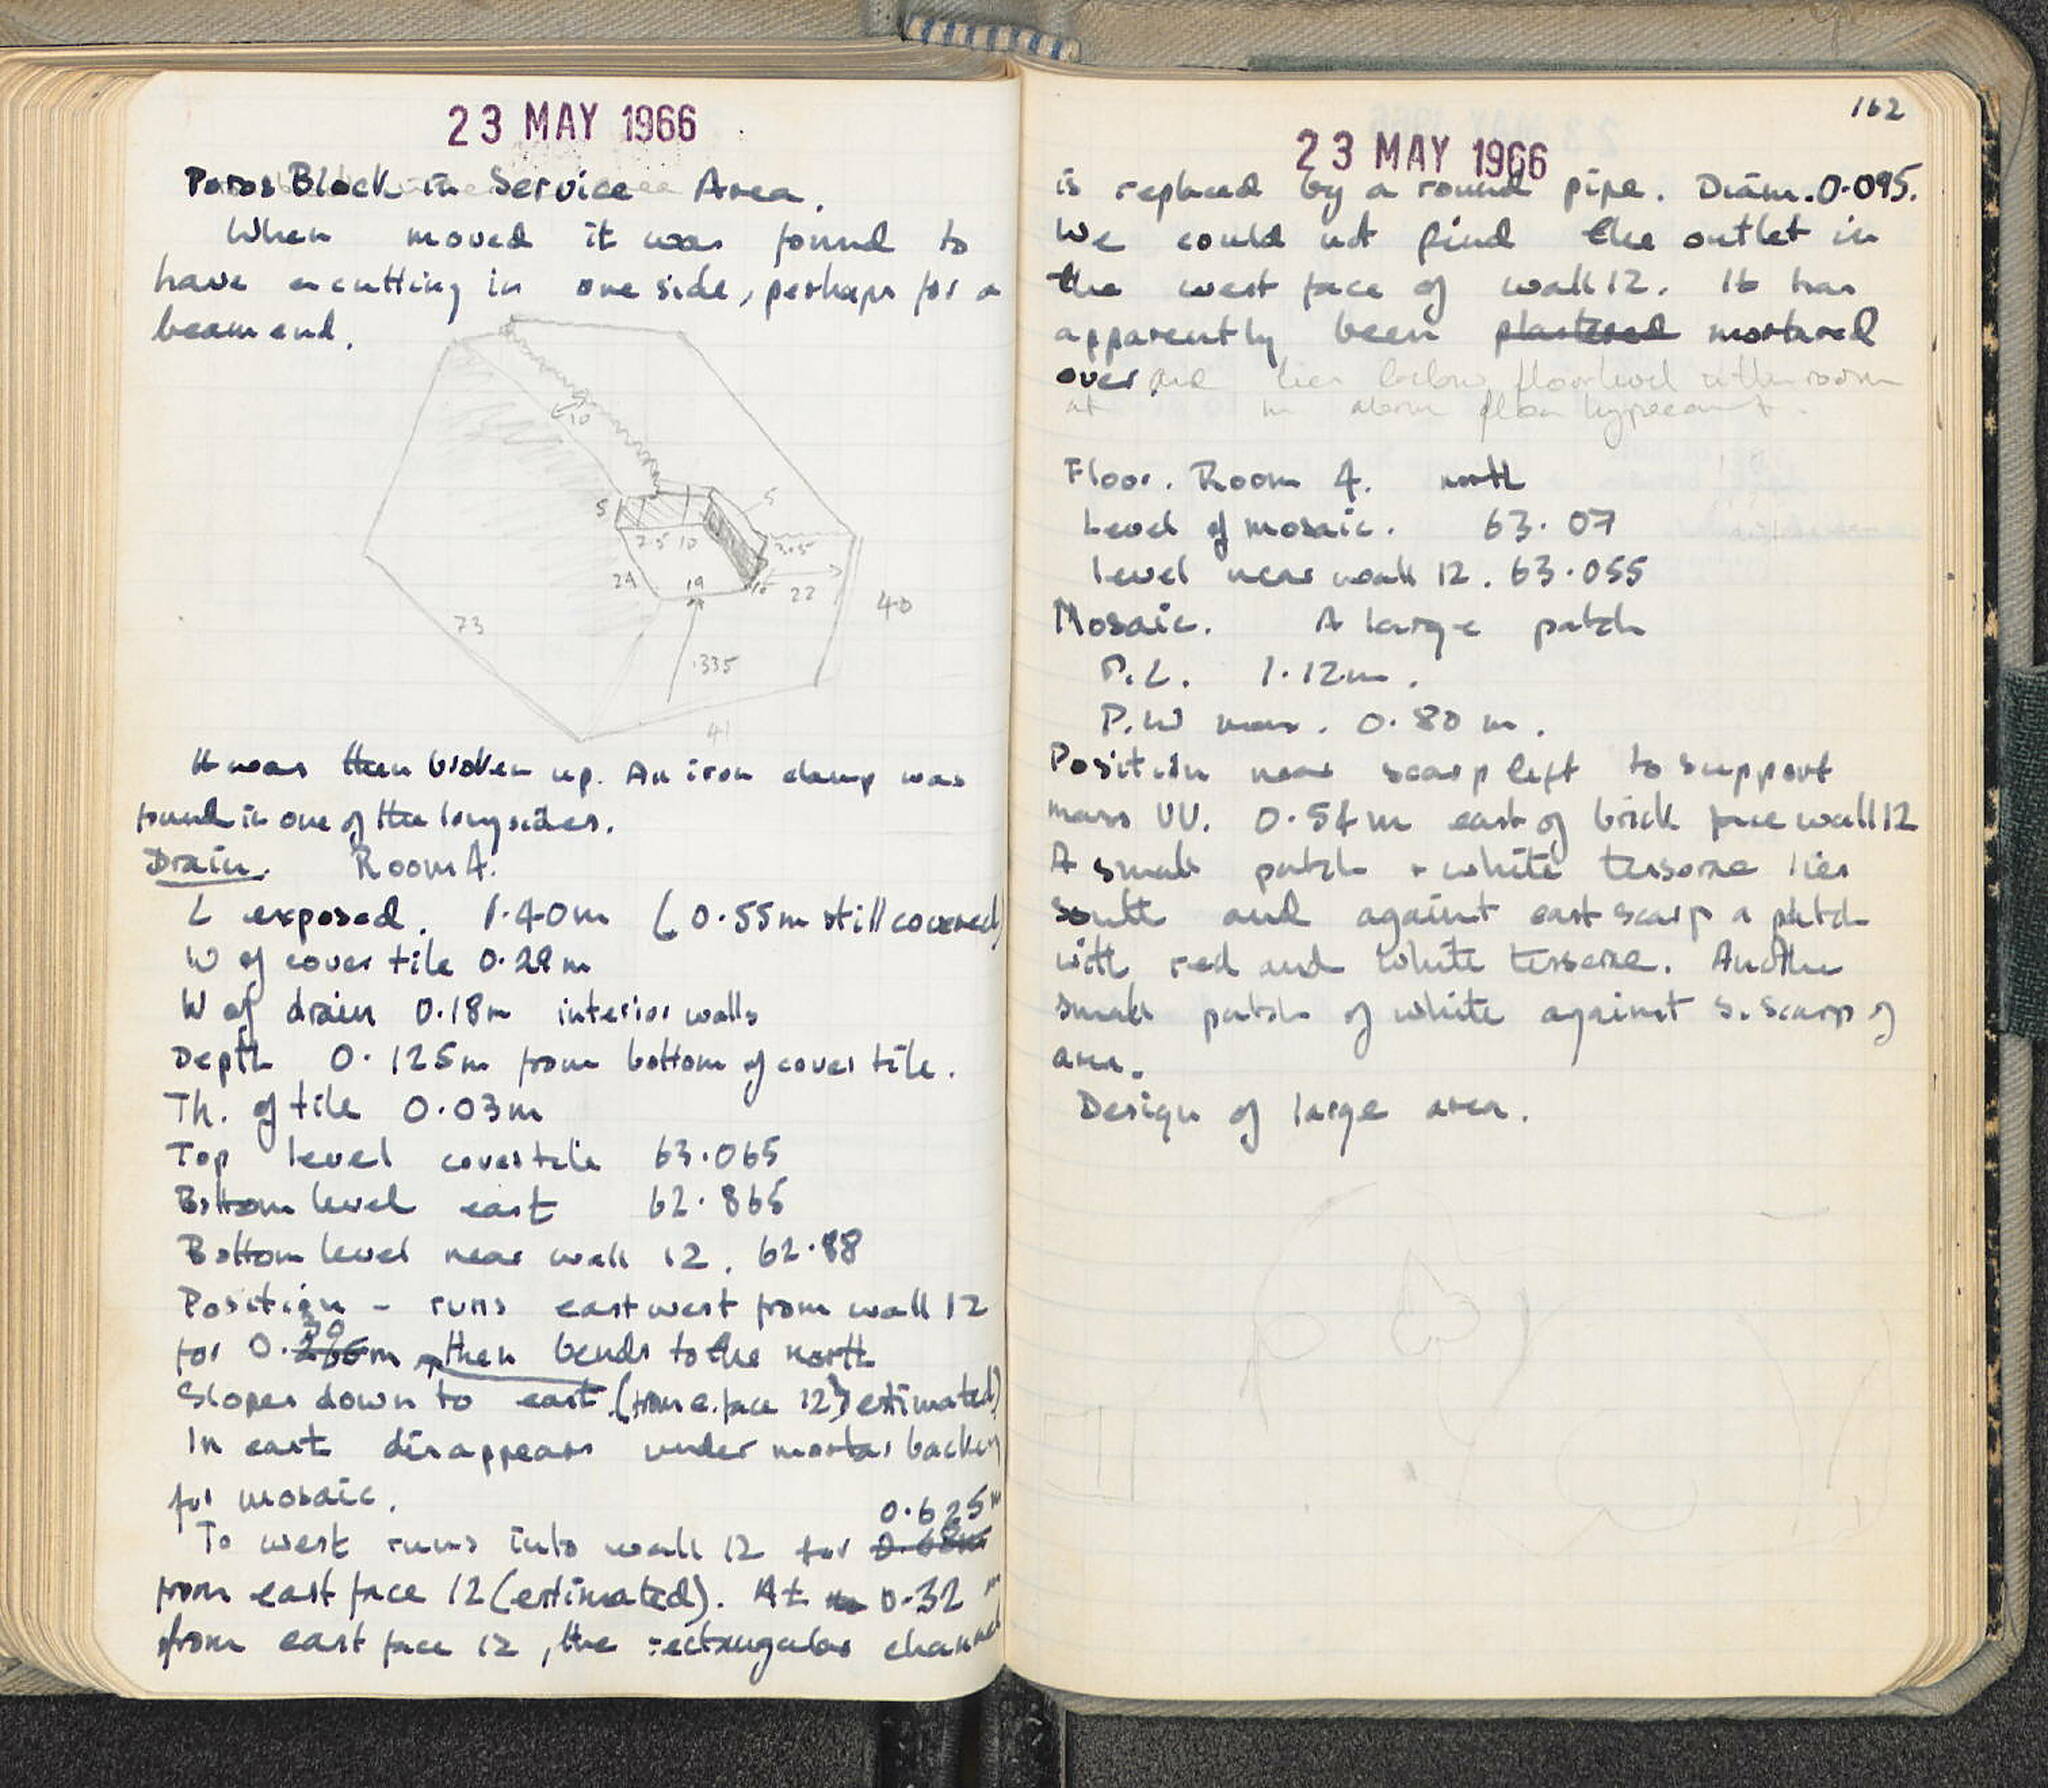 23 MAY 1966
Poros Block in Service Area.
When moved it was found to
have a cutting in one side, perhaps for a
beam end.
10
5
5
2.5 10
3.5
24
19
22
40
73
.335
41
It was then broken up. An iron clamp was
found in one of the long sides.
Drain. Room A.
L exposed. 1.40m (0.55m still covered)
W of cover tile 0.29m
W of drain 0.18m interior walls
Depth 0.125m from bottom of cover tile.
Th. of tile 0.03m
Top level cover tile 63.065
Bottom level east 62.865
Bottom level near wall 12. 62.88
Position - runs east west from wall 12
30
for 0. m then bends to the north
Slopes down to east. (from e. face 12) estimated)
In east disappears under mortar backing
for mosaic.
0.625m
To west runs into wall 12 for 0.68m
from east face 12 (estimated). At 0.32 m
from east face 12, the rectangular channel
162
23 MAY 1966
is replaced by a round pipe. Diam. 0.095.
We could not find the outlet in
the west face of wall 12. It has
apparently been plastered mortared
over and lies below floor level
at m above floor hypocaust.
Floor. Room A. north
Level of mosaic. 63.07
level near wall 12. 63.055
Mosaic. A large patch
P.L. 1.12m.
P.W max. 0.80 m.
Position near scarp left to support
mans VV. 0.54m east of brick face wall 12
A small patch + white tesserae lies
south and against east scarp a patch
with red and white tesserae. Another
small patch of white against S. scarp of
area.
Design of large area.